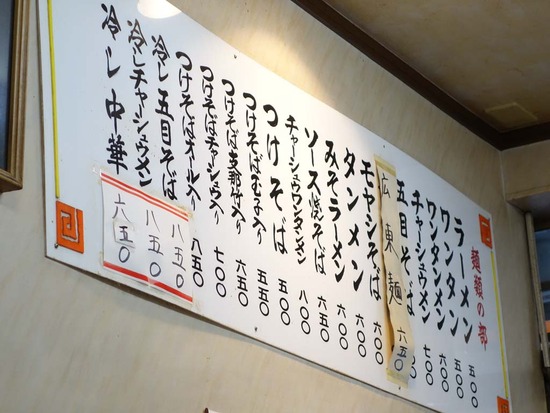 麺類の部
ラーメン 五〇〇
ワンタン 五五〇
ワンタンメン 六〇〇
チャーシュウメン 七〇〇
五目そば
広東麺 六五〇
モヤシそば 六〇〇
タンメン 六〇〇
みそラーメン 六〇〇
ソース焼そば 六五〇
チャーシュウワンタンメン 八〇〇
つけそば 五〇〇
つけそば玉子入り 五五〇
つけそば支那竹入り 六五〇
つけそばチャーシュウ入り 七〇〇
つけそばオール入り 八五〇
冷し五目そば 八五〇
冷しチャーシュウメン 八五〇
冷し中華 六五〇